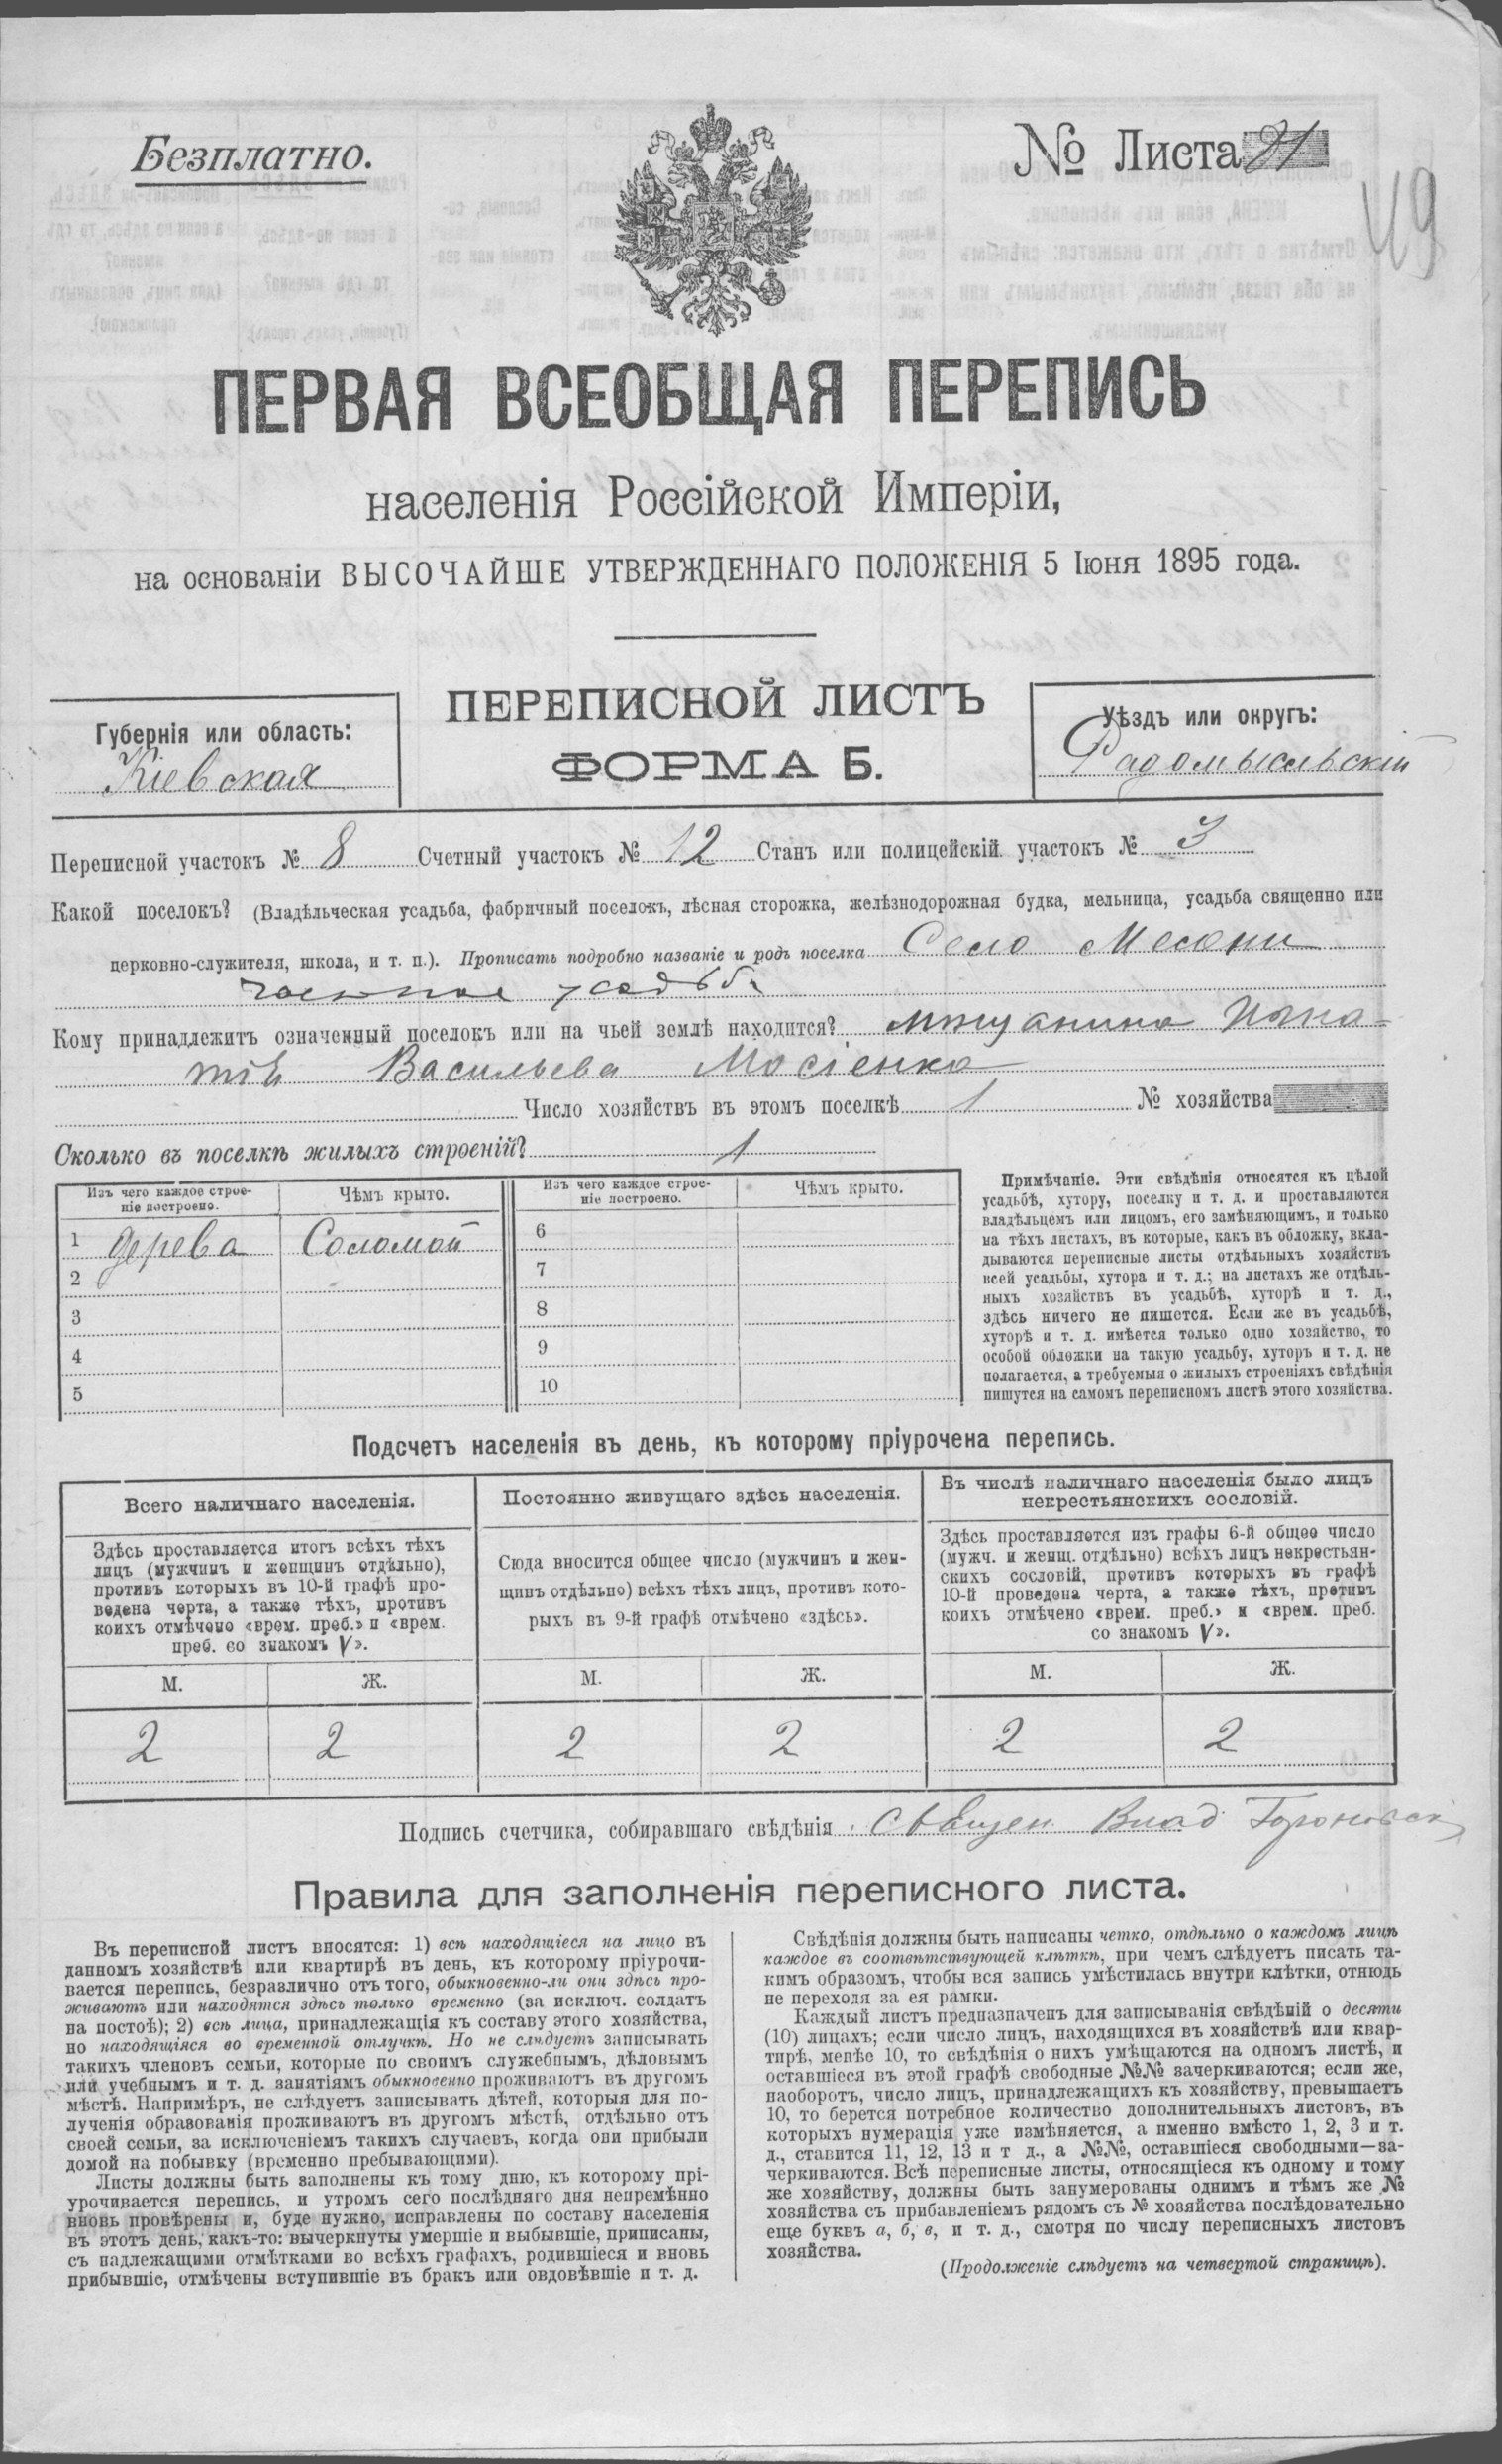 Безплатно.
№ Листа 21
49
ПЕРВАЯ ВСЕОБЩАЯ ПЕРЕПИСЬ
населенія Россійской Имперіи,
на основаніи ВЫСОЧАЙШЕ УТВЕРЖДЕННАГО ПОЛОЖЕНІЯ 5 Іюня 1895 года.
ПЕРЕПИСНОЙ ЛИСТЪ
ФОРМА Б.
Губернія или область:
Кіевская
Уѣздъ или округъ:
Радомысльскій
Переписной участокъ № 8 Счетный участокъ № 12 Станъ или полицейскій участокъ № 3
Какой поселокъ? (Владѣльческая усадьба, фабричный поселокъ, лѣсная сторожка, желѣзнодорожная будка, мельница, усадьба священно или
церковно-служителя, школа, и т. п.). Прописать подробно названіе и родъ поселка Село
усадьба
Кому принадлежитъ означенный поселокъ или на чьей землѣ находится? Игна-
тія Васильева Мосіенко
Число хозяйствъ въ этомъ поселкѣ 1 № хозяйства
Сколько въ поселкѣ жилыхъ строеній? 1
Изъ чего каждое строе-
ніе построено.
Чѣмъ крыто.
Изъ чего каждое строе-
ніе построено.
Чѣмъ крыто.
1 дерева Соломой
2
3
4
5
6
7
8
9
10
Примѣчаніе. Эти свѣдѣнія относятся къ цѣлой
усадьбѣ, хутору, поселку и т. д. и проставляются
владѣльцемъ или лицомъ, его замѣняющимъ, и только
на тѣхъ листахъ, въ которые, какъ въ обложку, вкла-
дываются переписные листы отдѣльныхъ хозяйствъ
всей усадьбы, хутора и т. д.; на листахъ же отдѣль-
ныхъ хозяйствъ въ усадьбѣ, хуторѣ и т. д.,
здѣсь ничего не пишется. Если же въ усадьбѣ,
хуторѣ и т. д. имѣется только одно хозяйство, то
особой обложки на такую усадьбу, хуторъ и т. д. не
полагается, а требуемыя о жилыхъ строеніяхъ свѣдѣнія
пишутся на самомъ переписномъ листѣ этого хозяйства.
Подсчетъ населенія въ день, къ которому пріурочена перепись.
Всего наличнаго населенія.
Здѣсь проставляется итогъ всѣхъ тѣхъ
лицъ (мужчинъ и женщинъ отдѣльно),
противъ которыхъ въ 10-й графѣ про-
ведена черта, а также тѣхъ, противъ
коихъ отмѣчено «врем. преб.» и «врем.
преб. со знакомъ V».
Постоянно живущаго здѣсь населенія.
Сюда вносится общее число (мужчинъ и жен-
щинъ отдѣльно) всѣхъ тѣхъ лицъ, противъ кото-
рыхъ въ 9-й графѣ отмѣчено «здѣсь».
Въ числѣ наличнаго населенія было лицъ
некрестьянскихъ сословій.
Здѣсь проставляется изъ графы 6-й общее число
(мужч. и женщ. отдѣльно) всѣхъ лицъ некрестьян-
скихъ сословій, противъ которыхъ въ графѣ
10-й проведена черта, а также тѣхъ, противъ
коихъ отмѣчено «врем. преб.» и «врем. преб.
со знакомъ V».
М. Ж. М. Ж. М. Ж.
2 2 2 2 2 2
Подпись счетчика, собиравшаго свѣдѣнія Священ Влад
Правила для заполненія переписного листа.
Въ переписной листъ вносятся: 1) всѣ находящіеся на лицо въ
данномъ хозяйствѣ или квартирѣ въ день, къ которому пріурочи-
вается перепись, безразлично отъ того, обыкновенно-ли они здѣсь про-
живаютъ или находятся здѣсь только временно (за исключ. солдатъ
на постоѣ); 2) всѣ лица, принадлежащія къ составу этого хозяйства,
но находящіяся во временной отлучкѣ. Но не слѣдуетъ записывать
такихъ членовъ семьи, которые по своимъ служебнымъ, дѣловымъ
или учебнымъ и т. д. занятіямъ обыкновенно проживаютъ въ другомъ
мѣстѣ. Напримѣръ, не слѣдуетъ записывать дѣтей, которыя для по-
лученія образованія проживаютъ въ другомъ мѣстѣ, отдѣльно отъ
своей семьи, за исключеніемъ такихъ случаевъ, когда они прибыли
домой на побывку (временно пребывающими).
Листы должны быть заполнены къ тому дню, къ которому прі-
урочивается перепись, и утромъ сего послѣдняго дня непремѣнно
вновь провѣрены и, буде нужно, исправлены по составу населенія
въ этотъ день, какъ-то: вычеркнуты умершіе и выбывшіе, приписаны,
съ надлежащими отмѣтками во всѣхъ графахъ, родившіеся и вновь
прибывшіе, отмѣчены вступившіе въ бракъ или овдовѣвшіе и т. д.
Свѣдѣнія должны быть написаны четко, отдѣльно о каждомъ лицѣ
каждое въ соотвѣтствующей клѣткѣ, при чемъ слѣдуетъ писать та-
кимъ образомъ, чтобы вся запись умѣстилась внутри клѣтки, отнюдь
не переходя за ея рамки.
Каждый листъ предназначенъ для записыванія свѣдѣній о десяти
(10) лицахъ; если число лицъ, находящихся въ хозяйствѣ или квар-
тирѣ, менѣе 10, то свѣдѣнія о нихъ умѣщаются на одномъ листѣ, и
оставшіеся въ этой графѣ свободные №№ зачеркиваются; если же,
наоборотъ, число лицъ, принадлежащихъ къ хозяйству, превышаетъ
10, то берется потребное количество дополнительныхъ листовъ, въ
которыхъ нумерація уже измѣняется, а именно вмѣсто 1, 2, 3 и т.
д., ставится 11, 12, 13 и т д., а №№, оставшіеся свободными—за-
черкиваются. Всѣ переписные листы, относящіеся къ одному и тому
же хозяйству, должны быть занумерованы однимъ и тѣмъ же №
хозяйства съ прибавленіемъ рядомъ съ № хозяйства послѣдовательно
еще буквъ а, б, в, и т. д., смотря по числу переписныхъ листовъ
хозяйства.
(Продолженіе слѣдуетъ на четвертой страницѣ).